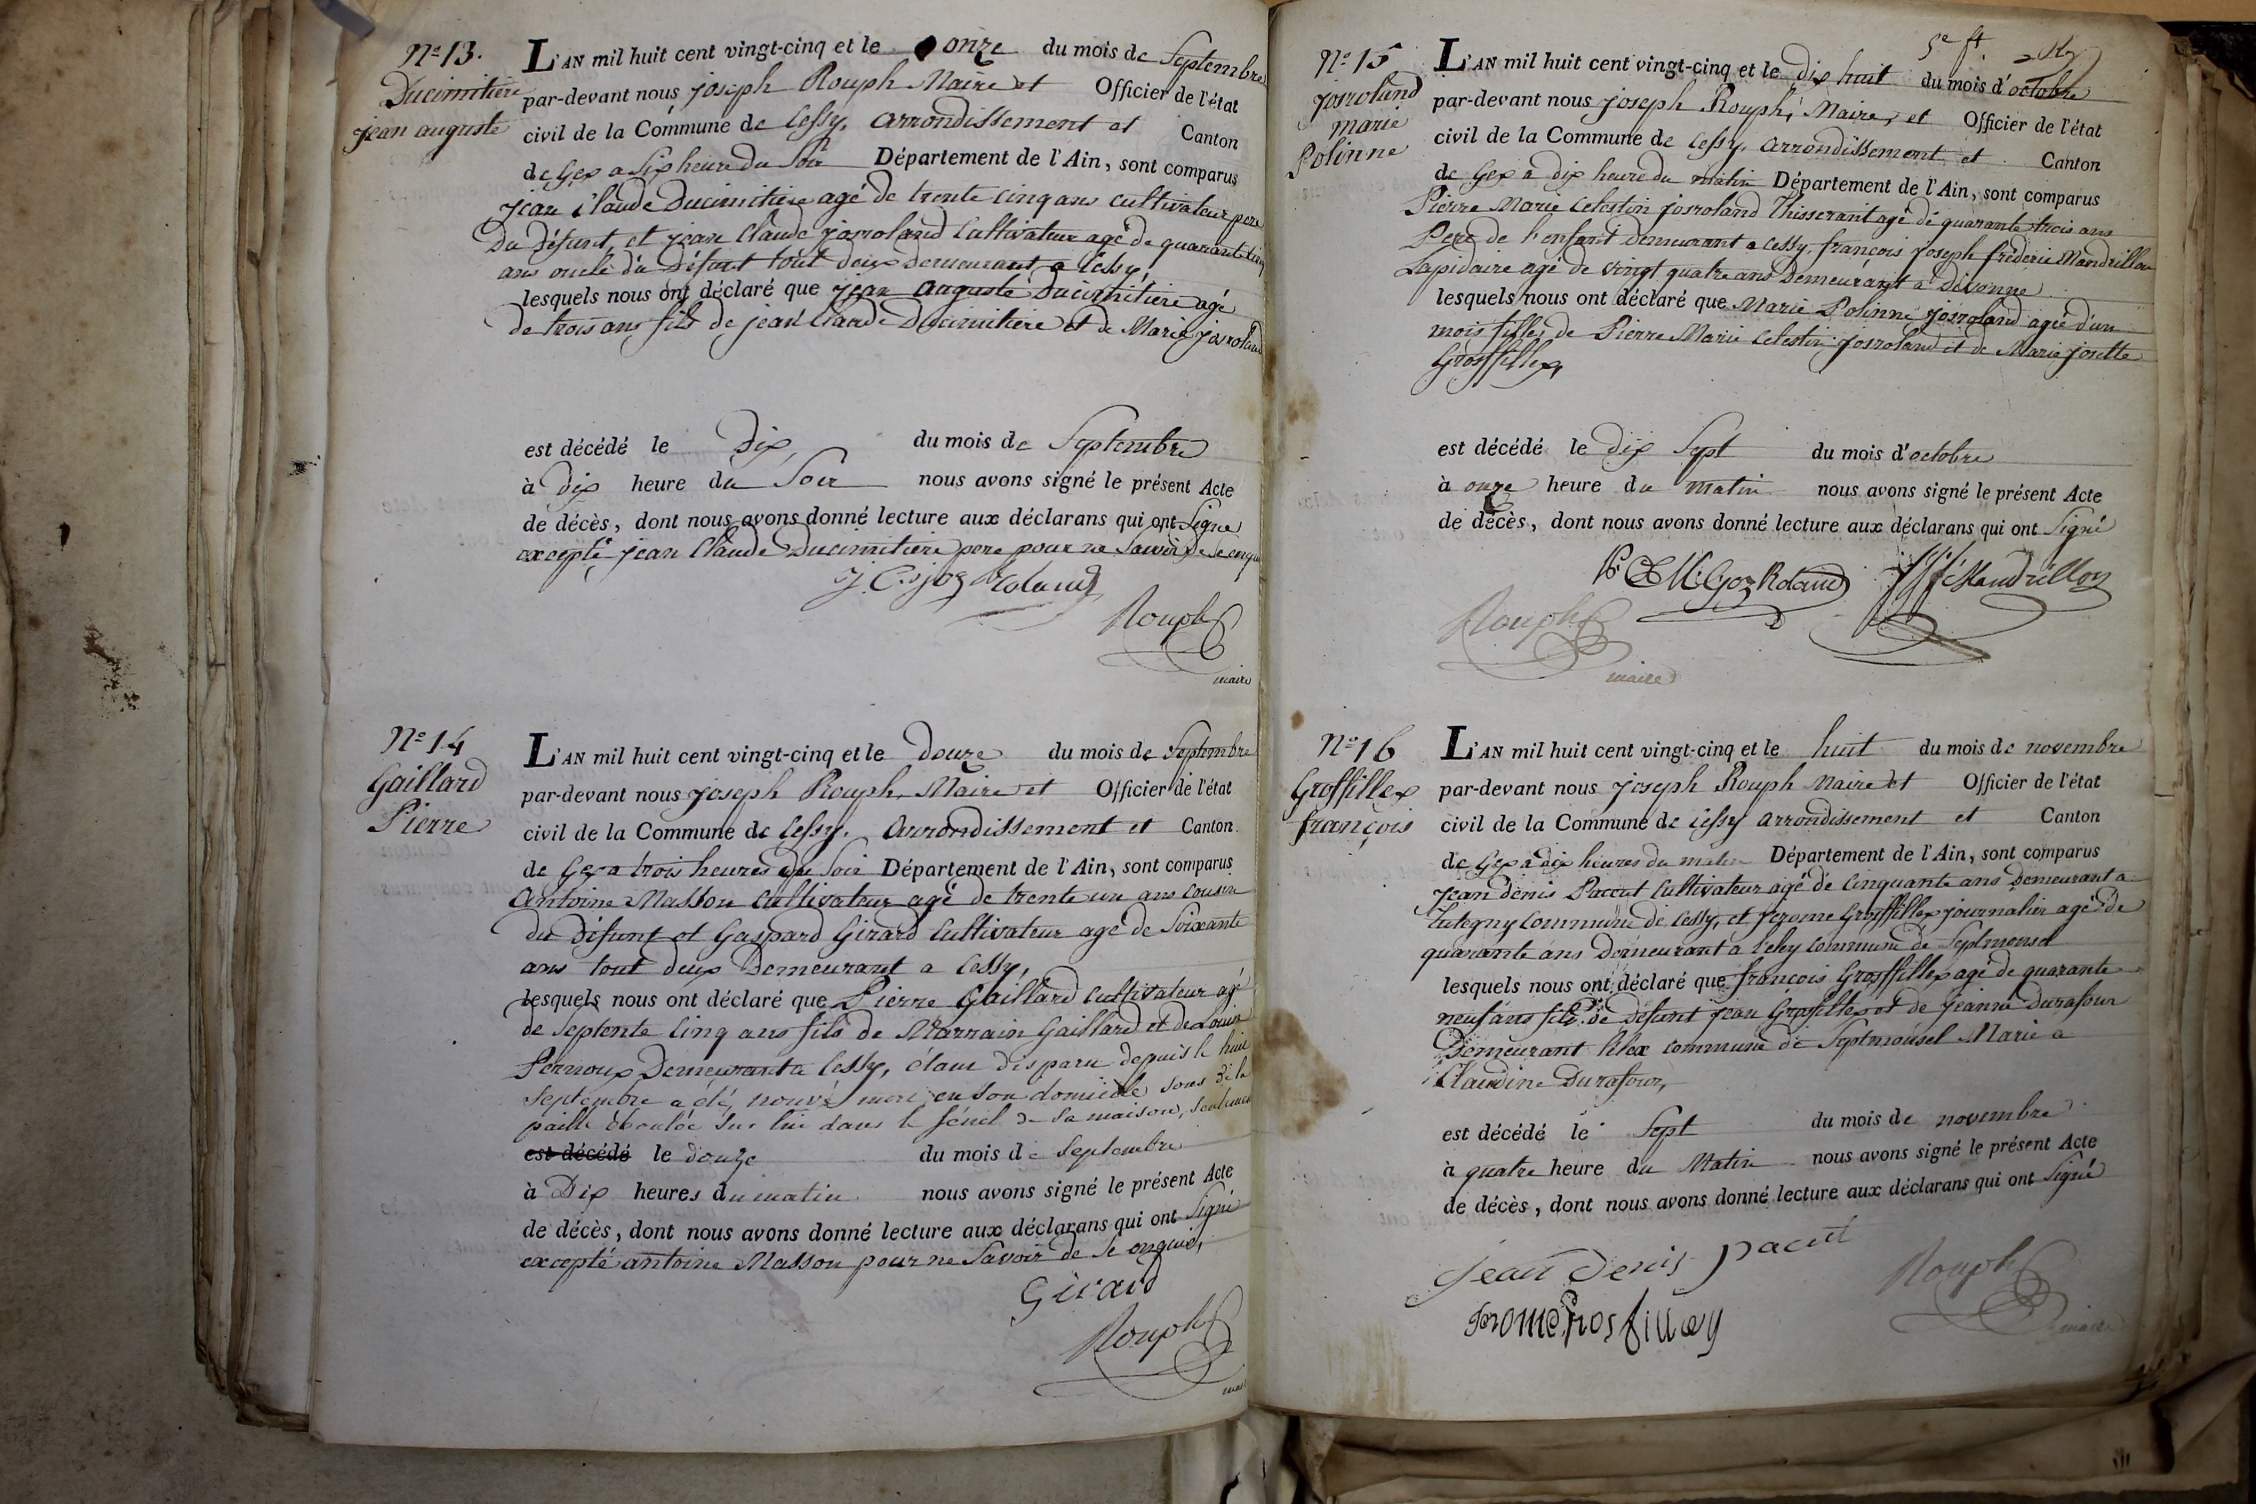 Nº 13.
Ducimitière
jean auguste
L'AN mil huit cent vingt-cinq et le onze du mois de Septembre
par-devant nous joseph Rouph Maire et Officier de l'état
civil de la Commune de Cessy, arrondissement et Canton
de Gex a Six heure du Soir Département de l'Ain, sont comparus
jean Claude Ducimitiere agé de trente cinq ans cultivateur pere
du défunt, et jean Claude josroland Cultivateur agé de quarante cinq
ans oncle du défunt tout deux demeurant a Cessy,
lesquels nous ont déclaré que jean auguste Ducimitiere agé
de trois ans fils de jean Claude Ducimitiere et de Marie josroland
est décédé le Dix, du mois de Septembre
à Dix heure du Soir nous avons signé le présent Acte
de décès, dont nous avons donné lecture aux déclarans qui ont Signé
excepté jean Claude Ducimitiere pere pour ne Savoir de ce enquis
J. C. joz Roland
Rouph
maire
Nº 14
Gaillard
Pierre
L'AN mil huit cent vingt-cinq et le douze du mois de Septembre
par-devant nous joseph Rouph, Maire et Officier de l'état
civil de la Commune de Cessy. arrondissement et Canton.
de Gex a trois heures du Soir Département de l'Ain, sont comparus
antoine Masson cultivateur agé de trente un ans cousin
du défunt et Gaspard Girard Cultivateur agé de Soixante
ans tout deux Demeurant a Cessy,
lesquels nous ont déclaré que Pierre Gaillard cultivateur agé
de Septente Cinq ans fils de Marrain Gaillard et de Louise
Pernoux Demeurant a Cessy, étant disparu depuis le huit
Septembre a été trouvé mort en son domicile sous de la
paille éboulée sur lui dans le fénil de sa maison, seulement
est décédé le douze du mois de Septembre
à Dix heures du matin nous avons signé le présent Acte
de décès, dont nous avons donné lecture aux déclarans qui ont Signé
excepté antoine Masson pour ne Savoir de Ce enquis,
Girard
Rouph
maire
Nº 15
josroland
marie
Polinne
L'AN mil huit cent vingt-cinq et le dix huit du mois d'octobre
par-devant nous joseph Rouph, Maire, et Officier de l'état
civil de la Commune de Cessy, arrondissement et Canton
de Gex a dix heure du matin Département de l'Ain, sont comparus
Pierre Marie Celestin josroland Thisserant agé de quarante trois ans
Pere de l'enfant demeurant a Cessy, françois joseph fréderic Mandrillon
Lapidaire agé de vingt quatre ans Demeurant a Divonne
lesquels nous ont déclaré que Marie Polinne josroland agée d'un
mois fille, de Pierre Marie Celestin josroland et de Marie josette
Grosfillex,
est décédé le dix Sept du mois d'octobre
à onze heure du matin nous avons signé le présent Acte
de décès, dont nous avons donné lecture aux déclarans qui ont Signé
P. C. M. Goz Roland J. f. f. Mandrillon
Rouph
maire
Nº 16
Grosfillex
françois
L'AN mil huit cent vingt-cinq et le huit du mois de novembre
par-devant nous joseph Rouph Maire et Officier de l'état
civil de la Commune de Cessy arrondissement et Canton
de Gex a dix heures du matin Département de l'Ain, sont comparus
jean denis Paccut Cultivateur agé de Cinquante ans Demeurant a
Tutegny Commune de Cessy, et jerome Grosfillex journalier agé de
quarante ans demeurant a commune de Septmoncel
lesquels nous ont déclaré que françois Grosfillex agé de quarante
neuf ans fils de défunt jean Grosfillex et de jeanne durafour
Demeurant commune de Septmousel Marié a
Claudine Durafour,
est décédé le Sept du mois de novembre
à quatre heure du Matin nous avons signé le présent Acte
de décès, dont nous avons donné lecture aux déclarans qui ont Signé
jean denis pacut
Rouph
maire